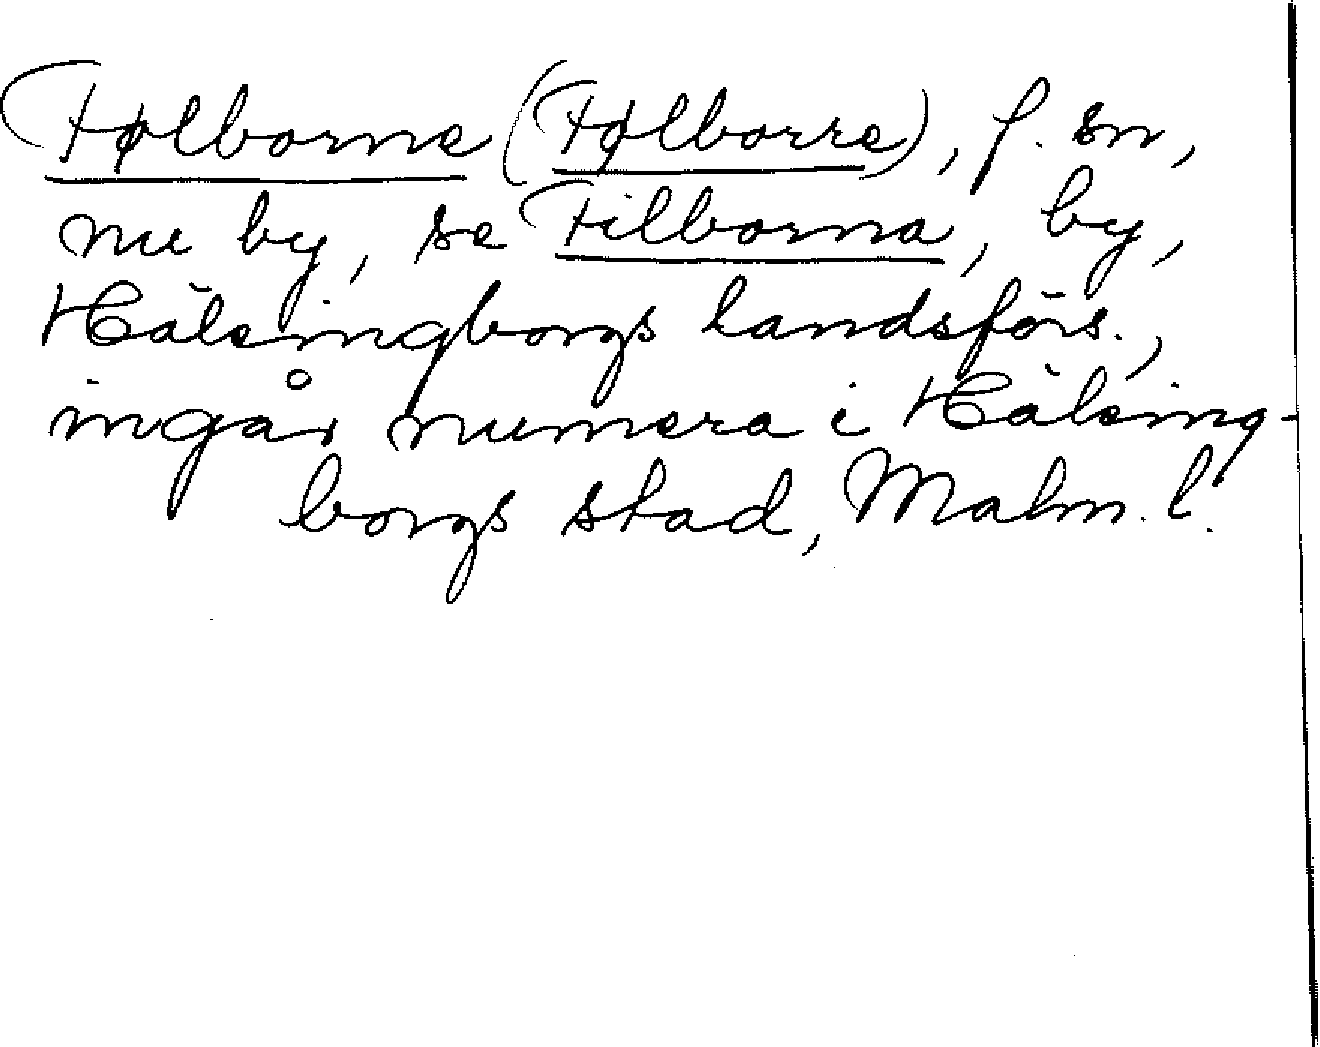 Følborne (Følborre), f. sn,
nu by, se Filborna, by,
Hälsingborgs landsförs.,
ingår numera i Hälsing-
borgs stad, Malm. l.